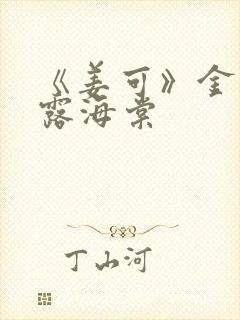 《姜可》金
露海棠
丁山河